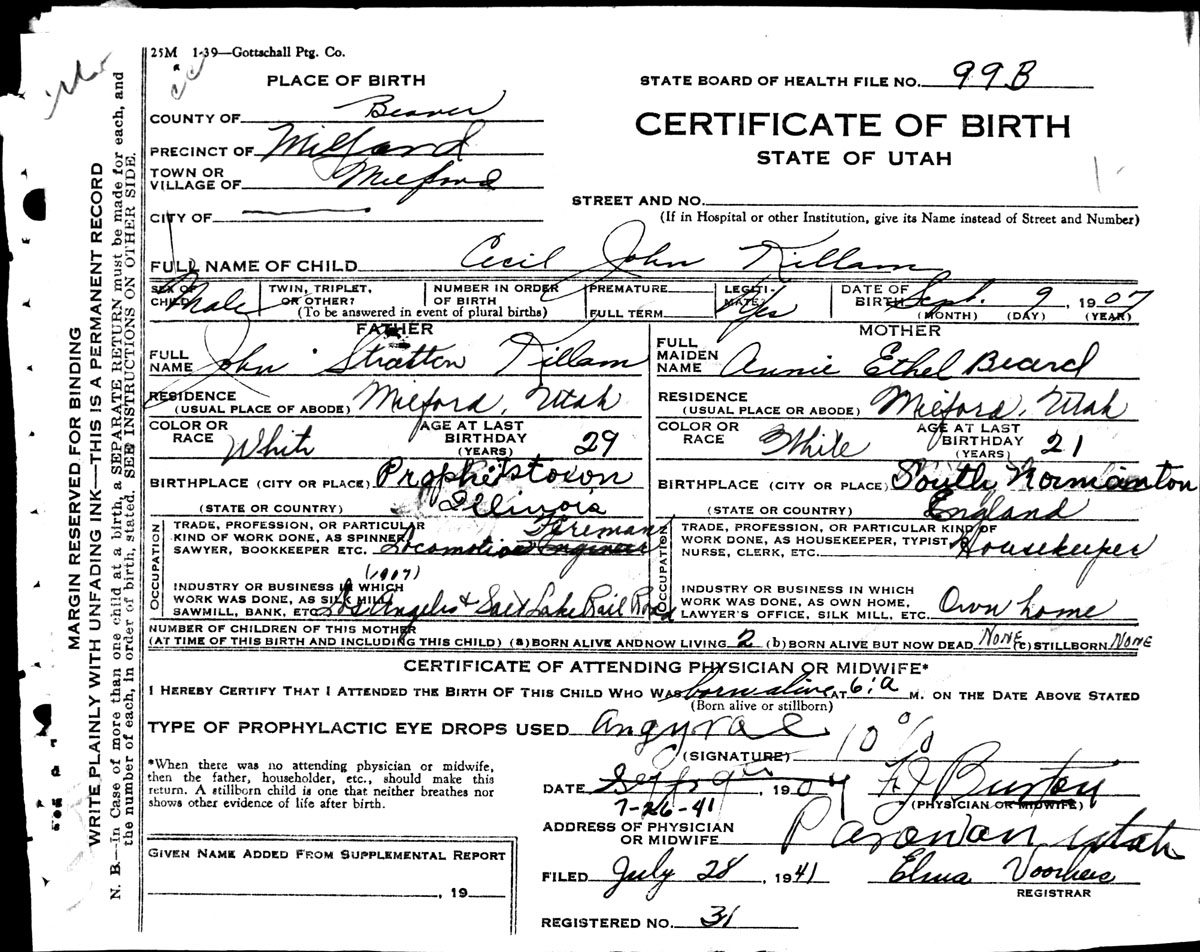 25M 1-39—Gottschall Ptg. Co.
PLACE OF BIRTH
STATE BOARD OF HEALTH FILE NO. 99B
COUNTY OF Beaver
CERTIFICATE OF BIRTH
PRECINCT OF Milford
STATE OF UTAH
TOWN OR
VILLAGE OF Milford
STREET AND NO.
CITY OF
(If in Hospital or other Institution, give its Name instead of Street and Number)
FULL NAME OF CHILD Cecil John Killam
SEX OF CHILD Male
TWIN, TRIPLET, OR OTHER?
NUMBER IN ORDER OF BIRTH
(To be answered in event of plural births)
PREMATURE
FULL TERM
LEGITIMATE? Yes
DATE OF BIRTH Sept. 9, 1907
(MONTH) (DAY) (YEAR)
FATHER
FULL NAME John Stratton Killam
RESIDENCE
(USUAL PLACE OF ABODE) Milford, Utah
COLOR OR RACE White
AGE AT LAST BIRTHDAY (YEARS) 29
BIRTHPLACE (CITY OR PLACE) Prophetstown
(STATE OR COUNTRY) Illinois
OCCUPATION
TRADE, PROFESSION, OR PARTICULAR
KIND OF WORK DONE, AS SPINNER,
SAWYER, BOOKKEEPER ETC. Locomotive Engineer Fireman
(1907)
INDUSTRY OR BUSINESS IN WHICH
WORK WAS DONE, AS SILK MILL,
SAWMILL, BANK, ETC. Los Angeles & Salt Lake Rail Road
MOTHER
FULL MAIDEN NAME Annie Ethel Beard
RESIDENCE
(USUAL PLACE OR ABODE) Milford, Utah
COLOR OR RACE White
AGE AT LAST BIRTHDAY (YEARS) 21
BIRTHPLACE (CITY OR PLACE) South Normanton
(STATE OR COUNTRY) England
OCCUPATION
TRADE, PROFESSION, OR PARTICULAR KIND OF
WORK DONE, AS HOUSEKEEPER, TYPIST
NURSE, CLERK, ETC. Housekeeper
INDUSTRY OR BUSINESS IN WHICH
WORK WAS DONE, AS OWN HOME,
LAWYER'S OFFICE, SILK MILL, ETC. Own home
NUMBER OF CHILDREN OF THIS MOTHER
(AT TIME OF THIS BIRTH AND INCLUDING THIS CHILD) (a) BORN ALIVE AND NOW LIVING 2 (b) BORN ALIVE BUT NOW DEAD None (c) STILLBORN None
CERTIFICATE OF ATTENDING PHYSICIAN OR MIDWIFE*
I HEREBY CERTIFY THAT I ATTENDED THE BIRTH OF THIS CHILD WHO WAS born alive AT 6:a M. ON THE DATE ABOVE STATED
(Born alive or stillborn)
TYPE OF PROPHYLACTIC EYE DROPS USED Argyrol 10%
*When there was no attending physician or midwife,
then the father, householder, etc., should make this
return. A stillborn child is one that neither breathes nor
shows other evidence of life after birth.
(SIGNATURE)
DATE 1907
7-26-41
Burton
(PHYSICIAN OR MIDWIFE)
ADDRESS OF PHYSICIAN
OR MIDWIFE Parowan Utah
GIVEN NAME ADDED FROM SUPPLEMENTAL REPORT
, 19
FILED July 28, 1941
Elma Voorhees
REGISTRAR
REGISTERED NO. 31
MARGIN RESERVED FOR BINDING
WRITE PLAINLY WITH UNFADING INK—THIS IS A PERMANENT RECORD
N. B.—In Case of more than one child at a birth, a SEPARATE RETURN must be made for each, and
the number of each, in order of birth, stated. SEE INSTRUCTIONS ON OTHER SIDE.